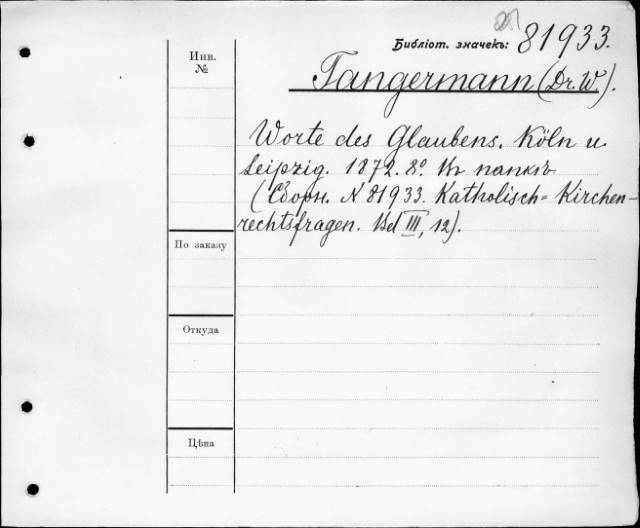 Библіот. значекъ: 81933.
Инв.
№
Tangermann (Dr. W.).
Worte des Glaubens. Köln u.
Leipzig. 1872. 8º. Въ папкѣ
(Сборн. N 81933. Katholisch= Kirchen-
rechtsfragen. Bd III, 12).
По заказу
Откуда
Цѣна